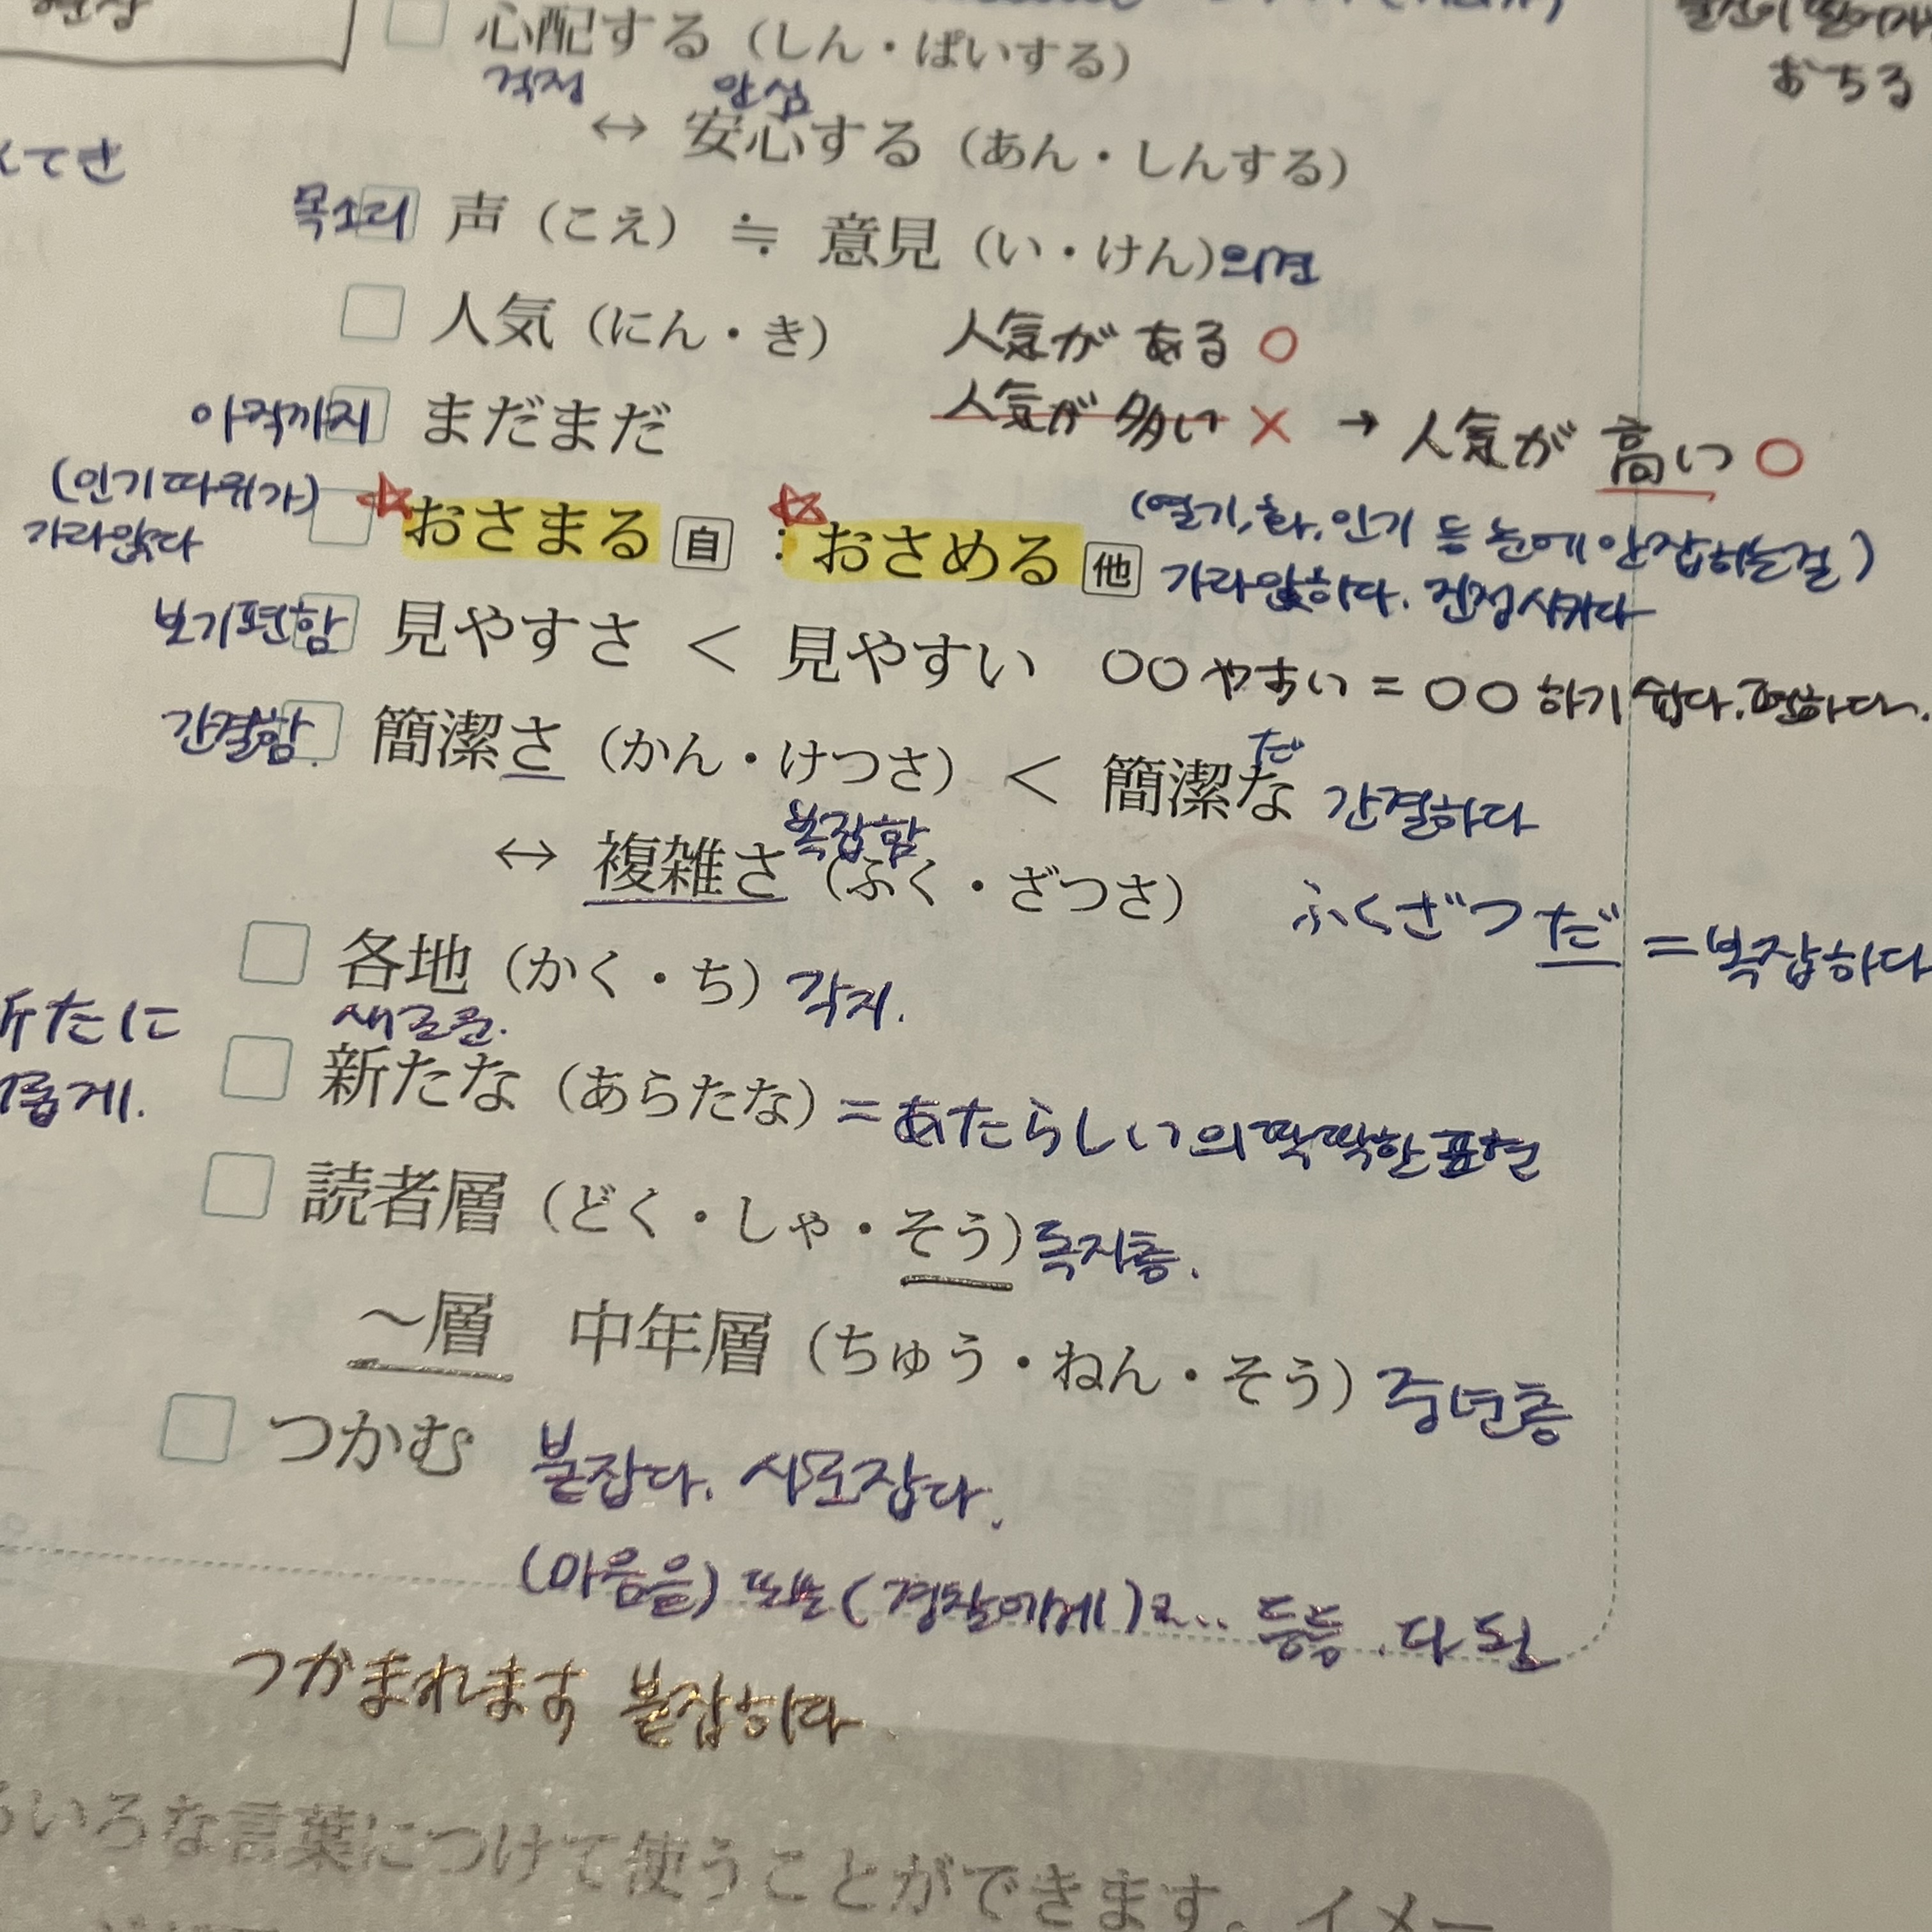 心配する（しん・ぱいする）
걱정
안심
↔ 安心する（あん・しんする）
おちる
くてさ
목소리 声（こえ） ≒ 意見（い・けん）의견
人気（にん・き） 人気が ある ○
아직까지 まだまだ 人気が 多い × → 人気が 高い ○
(인기 따위가) 가라앉다 ☆おさまる 自 : ☆おさめる 他 (열기, 화, 인기 등 눈에 안잡히는걸)
가라앉히다. 진정시키다
보기편함 見やすさ ＜ 見やすい ○○やすい = ○○ 하기 쉽다. 편하다.
간결함. 簡潔さ（かん・けつさ） ＜ 簡潔な だ 간결하다
복잡함
↔ 複雑さ（ふく・ざつさ） ふくざつだ = 복잡하다
各地（かく・ち） 각지.
새로운.
新たに
新たな（あらたな） = あたらしい의 딱딱한 표현
롭게.
読者層（どく・しゃ・そう）독자층.
～層 中年層（ちゅう・ねん・そう）중년층
つかむ 붙잡다. 사로잡다.
(마음을) 또는 (경찰에게) 등등. 다 됨
つかまれます 붙잡히다
ろいろな言葉につけて使うことができます。イメー